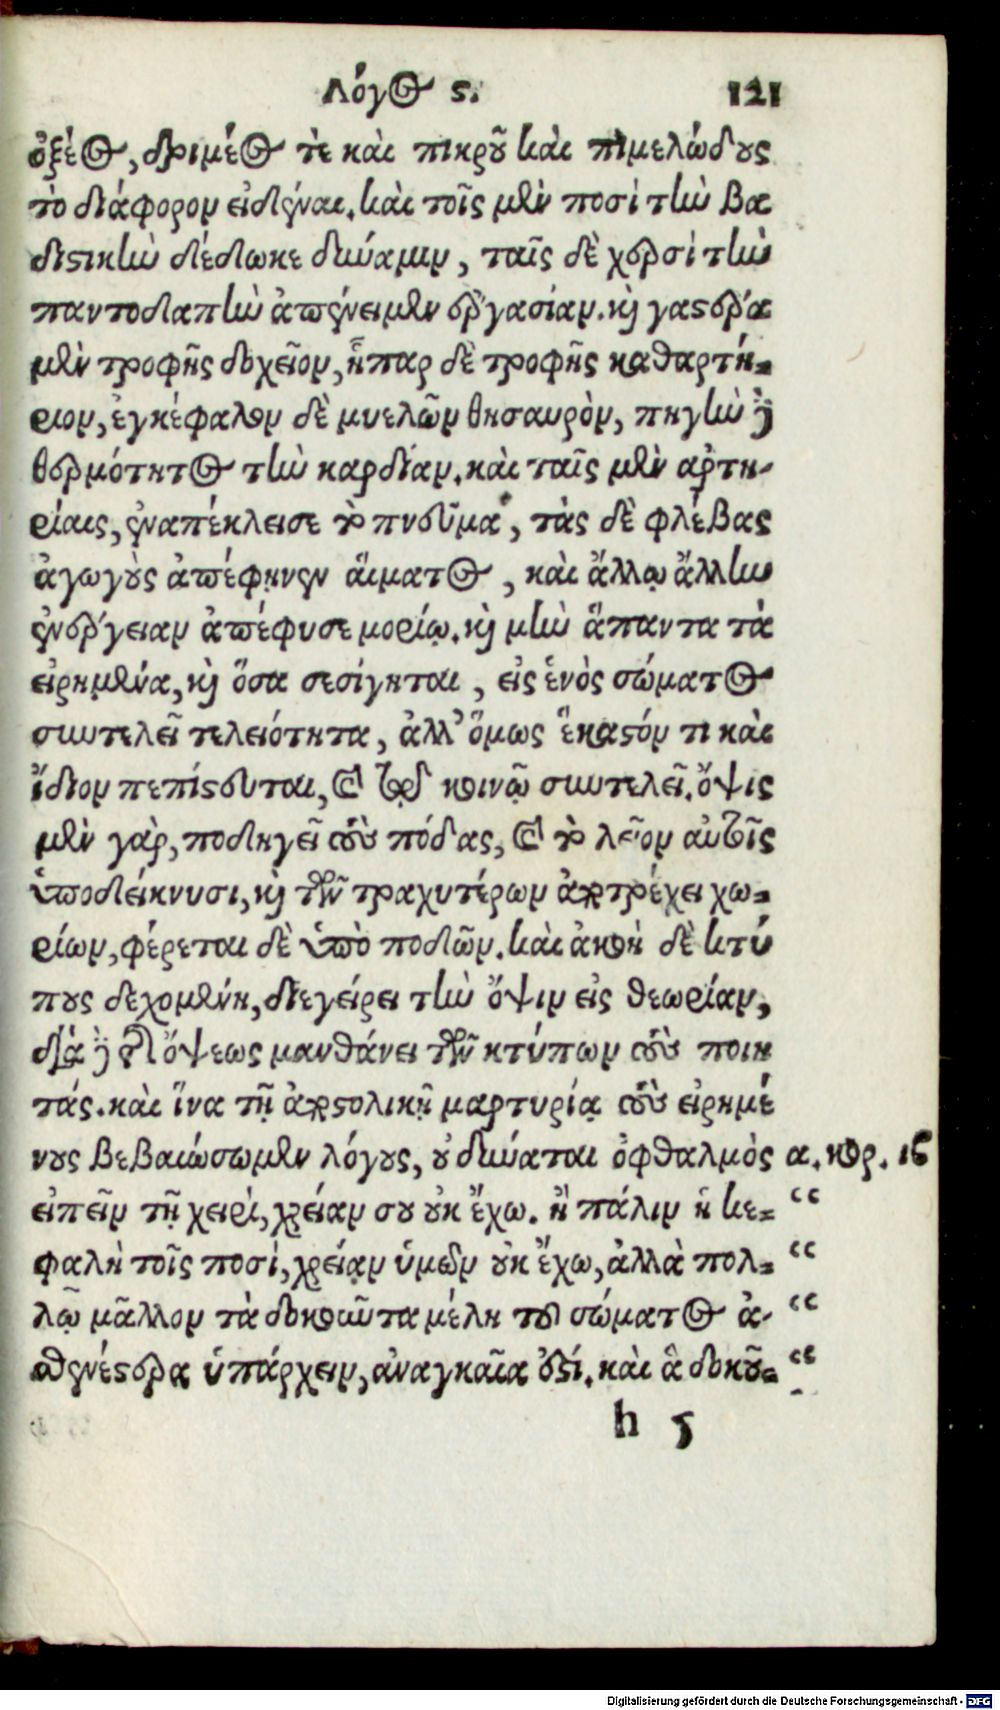 Λόγος ϛ. 121
ὀξέος, δριμέος τὲ καὶ πικροῦ καὶ πιμελώδους
τὸ διάφορον εἰδέναι. καὶ τοῖς μὲν ποσὶ τὴν βα
διστικὴν δέδωκε δύναμιν, ταῖς δὲ χερσὶ τὴν
παντοδαπὴν ἀπένειμεν ἐργασίαν. καὶ γαστέρα
μὲν τροφῆς δοχεῖον, ἧπαρ δὲ τροφῆς καθαρτή-
ριον, ἐγκέφαλον δὲ μυελῶν θησαυρὸν, πηγὴν δὲ
θερμότητος τὴν καρδίαν. καὶ ταῖς μὲν ἀρτη-
ρίαις, ἐναπέκλεισε τὸ πνεῦμα, τὰς δὲ φλέβας
ἀγωγοὺς ἀπέφηνεν αἵματος, καὶ ἄλλῳ ἄλλην
ἐνέργειαν ἀπέφυσε μορίῳ. καὶ μὴν ἅπαντα τὰ
εἰρημένα, καὶ ὅσα σεσίγηται, εἰς ἑνὸς σώματος
συντελεῖ τελειότητα, ἀλλ' ὅμως ἕκαστόν τι καὶ
ἴδιον πεπίστευται, καὶ τῷ κοινῷ συντελεῖ. ὄψις
μὲν γὰρ, ποδηγεῖ τοὺς πόδας, καὶ τὸ λεῖον αὐτοῖς
ὑποδείκνυσι, καὶ τῶν τραχυτέρων ἀποτρέχει χω-
ρίων, φέρεται δὲ ὑπὸ ποδῶν. καὶ ἀκοὴ δὲ κτύ
πους δεχομένη, διεγείρει τὴν ὄψιν εἰς θεωρίαν,
διὰ δὲ τῆς ὄψεως μανθάνει τῶν κτύπων τοὺς ποιη
τάς. καὶ ἵνα τῇ ἀποστολικῇ μαρτυρίᾳ τοὺς εἰρημέ
νους βεβαιώσωμεν λόγους, οὐ δύναται ὀφθαλμὸς α. κορ. 16
εἰπεῖν τῇ χειρὶ, χρείαν σου οὐκ ἔχω. ἢ πάλιν ἡ κε- “
φαλὴ τοῖς ποσὶ, χρείαν ὑμῶν οὐκ ἔχω, ἀλλὰ πολ- “
λῷ μᾶλλον τὰ δοκοῦντα μέλη τοῦ σώματος ἀ- “
σθενέστερα ὑπάρχειν, ἀναγκαῖα ἐστί. καὶ ἃ δοκοῦ- “
h 5
Digitalisierung gefördert durch die Deutsche Forschungsgemeinschaft - DFG